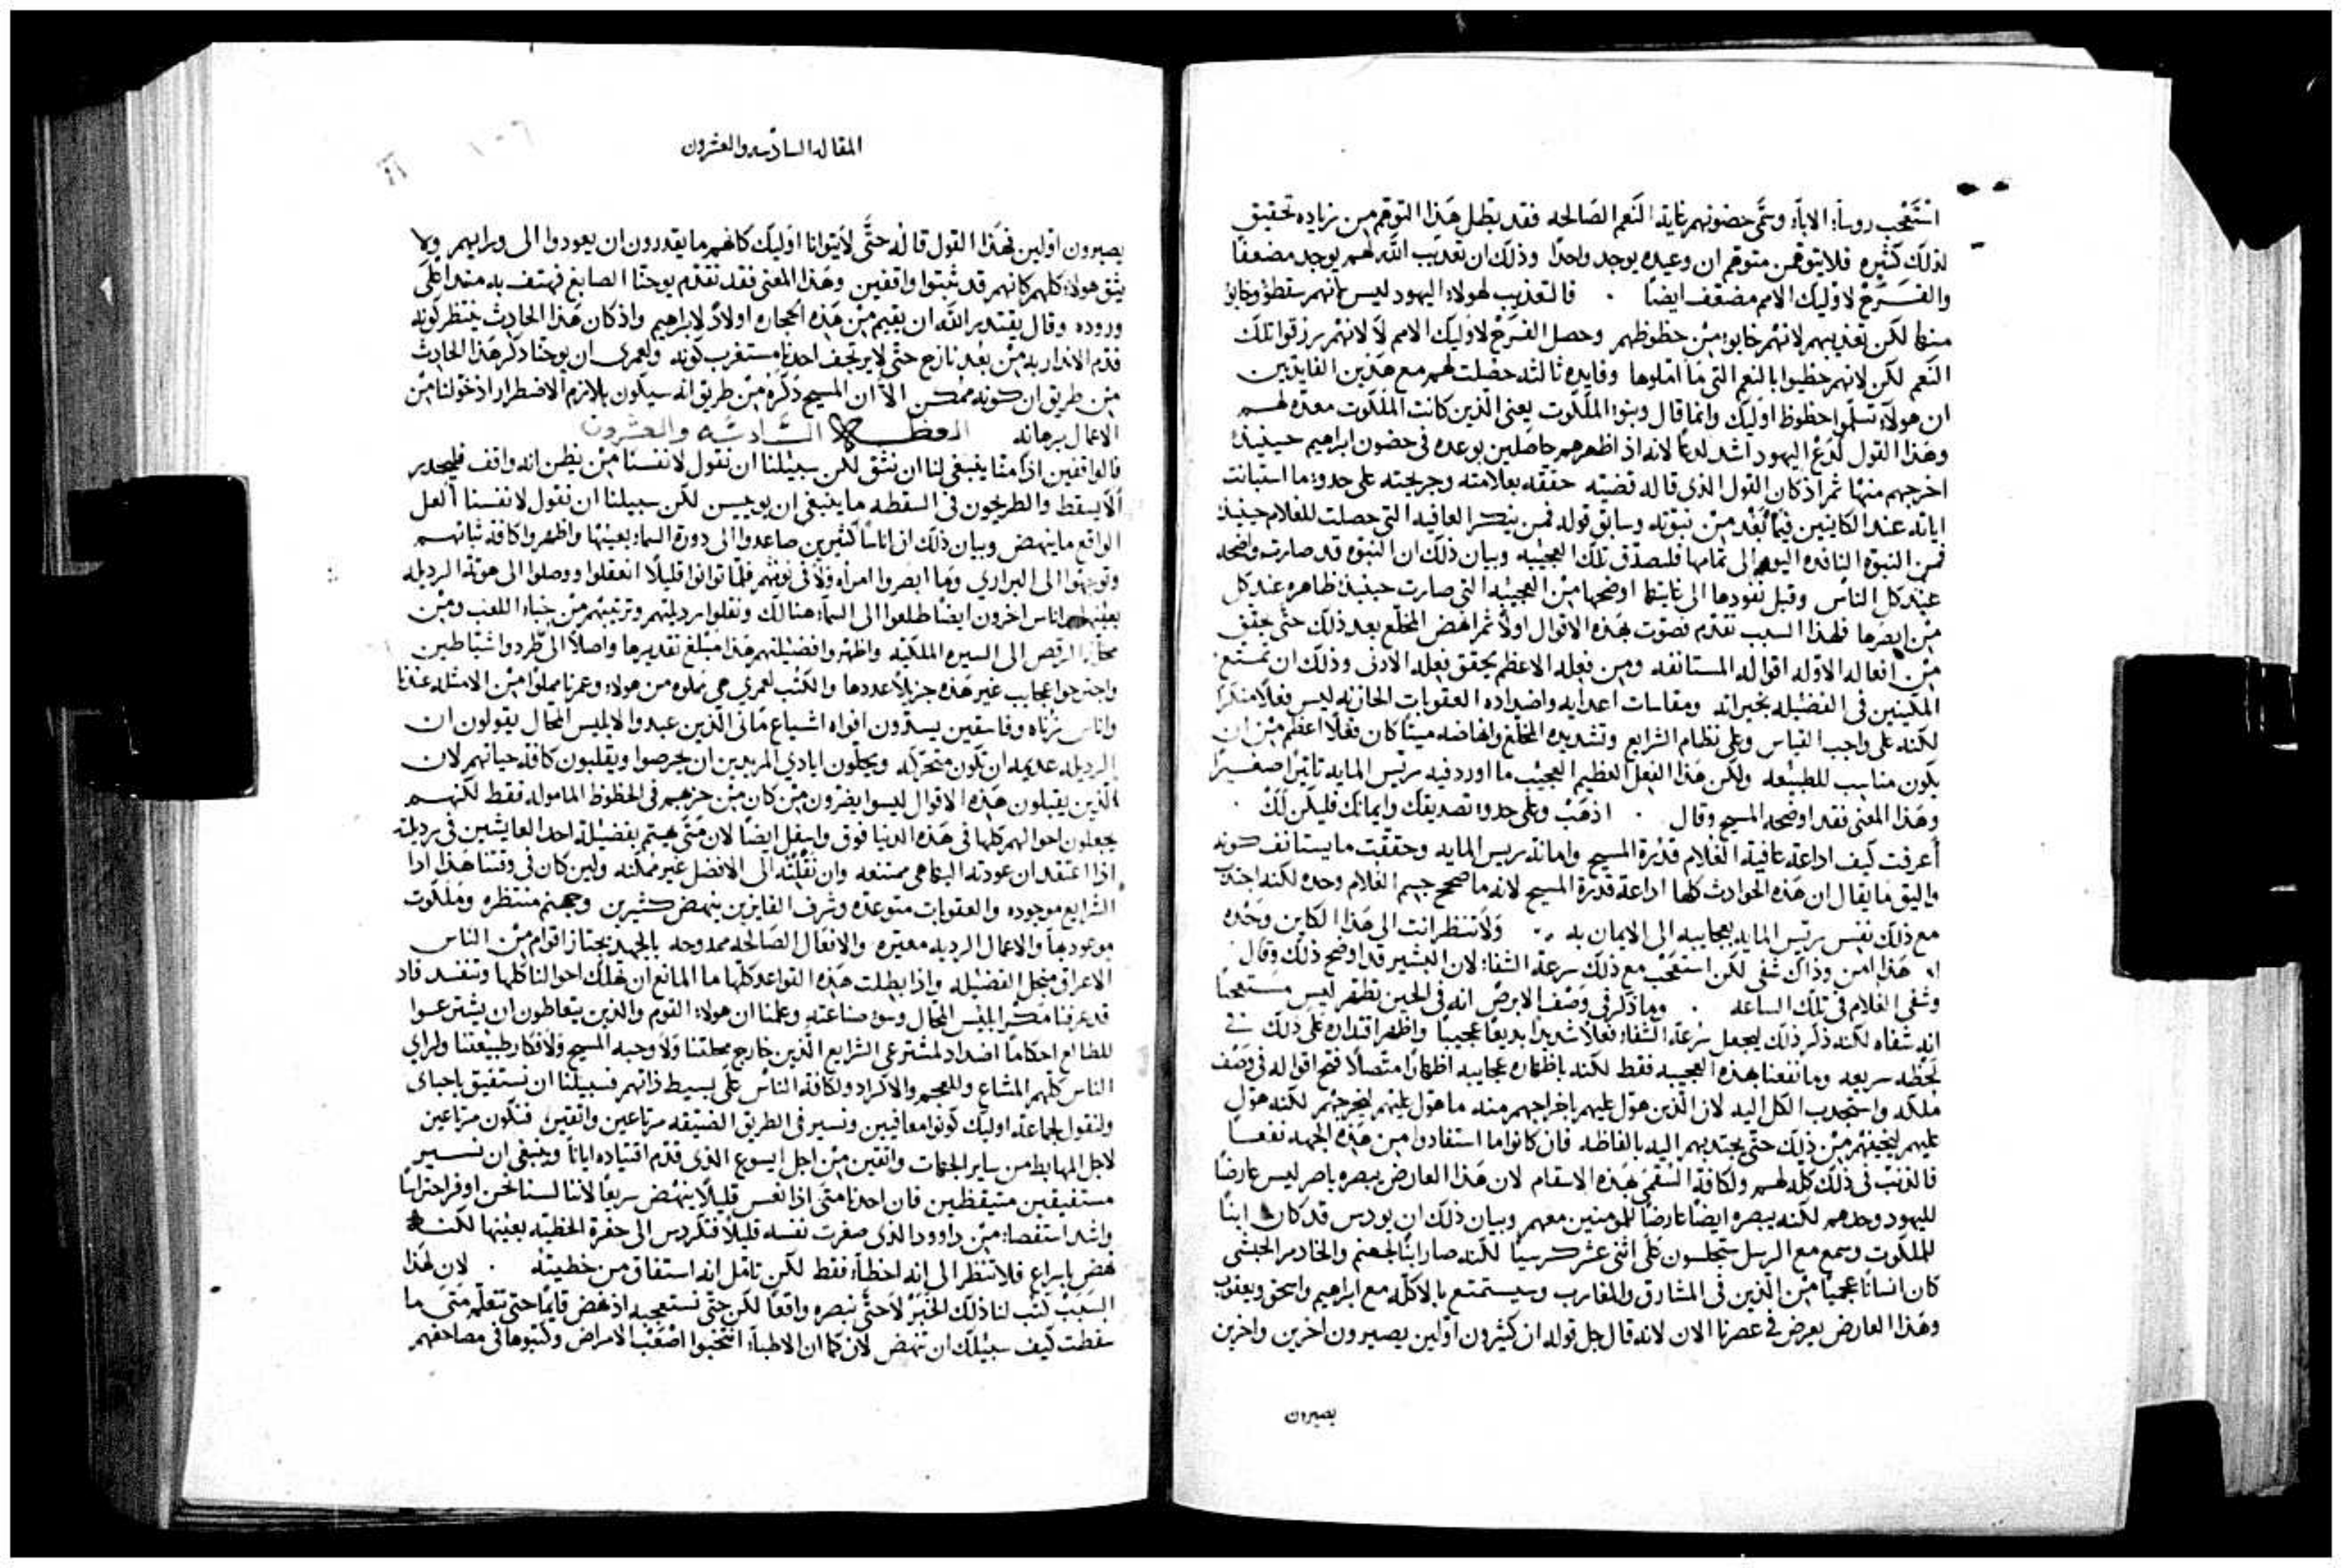 استعجب روساء الاباء وسمى حضونهم غاية النعم الصالحه فقد بطل هذا التوهم من زياده تحقيق
لذلك كثيره فلا يتوهمن متوهم ان وعيده يوجد واحدا وذلك ان تعذيب الله لهم يوجد مضعفا
والفرح لاوليك الامم مضعف ايضا . فالتعذيب لهولاء اليهود ليس لانهم سقطوا وخابوا
منها لكن تعذيبهم لانهم خابوا من حظوظهم وحصل الفرح لاوليك الامم لا لانهم رزقوا تلك
النعم لكن لانهم حظيوا بالنعم التي ما املوها وفايده ثالثه حصلت لهم مع هذين الفايدتين
ان هولاء تسلموا حظوظ اوليك وانما قال وبنوا الملكوت يعني الذين كانت الملكوت معده لهم
وهذا القول لذع اليهود اشد لدعا لانه اذ اظهرهم حاصلين بوعده في حضون ابراهيم حينيذ
اخرجهم منها ثم اذ كان القول الذي قاله قضيه حققه بعلامته وجريحته على حدو ما استبانت
اياته عند الكاينين فيما بعد من نبوته وسابق قوله فمن ينكر العافيه التي حصلت للغلام حينيذ
فمن النبوه النافده اليوم الى تمامها فليصدق تلك العجيبه وبيان ذلك ان النبوه قد صارت واضحه
عند كل الناس وقبل نفودها الى غايتها اوضحها من العجيبه التي صارت حينيذ ظاهره عند كل
من ابصرها فلهذا السبب تقدم فصوت بهذه الاقوال اولا ثم انهض المخلع بعد ذلك حتى يحقق
من افعاله الاوله اقواله المستانفه ومن فعله الاعظم يحقق فعله الادنى وذلك ان تمتع
المكينين في الفضيله بخيراته ومقاسات اعدايه واضداده العقوبات الحازنه ليس فعلا منكرا
لكنه على واجب القياس وعلى نظام الشرايع وتشديده المخلع وانهاضه ميتا كان فعلا اعظم من ان
يكون مناسب للطبيعه ولكن هذا الفعل العظيم العجيب ما اورد فيه ريس المايه تاثيرا صغيرا
وهذا المعنى فقد اوضحه المسيح وقال . اذهب وعلى حدو تصديقك وايمانك فليكن لك .
اعرفت كيف اداعة عافية الغلام قدرة المسيح وامانة ريس المايه وحققت ما يستانف كونه
واليق ما يقال ان هذه الحوادث كلها اداعة قدرة المسيح لانه ما صحح جسم الغلام وحده لكنه اجتدب
مع ذلك نفس ريس المايه بعجايبه الى الايمان به . ولا تنظر انت الى هذا الكاين وحده
ان هذا امن وذاك شفي لكن استعجب مع ذلك سرعة الشفاء لان البشير قد اوضح ذلك وقال
وشفي الغلام في تلك الساعه . وما ذكر في وصف الابرص انه في الحين تطهر ليس مستعجبا
انه شفاه لكنه ذكر ذلك ليجعل سرعة الشفاء فعلا شديدا بديعا عجيبا واظهر اقتداره على ذلك في
لحظه سريعه وما نفعنا بهذه العجيبه فقط لكنه باظهاره عجايبه اظهارا متصلا فتح اقواله في وصف
ملكه واستجدب الكل اليه لان الذين هول عليهم باخراجهم منه ما هول عليهم ليخرجهم لكنه هول
عليهم ليخيفهم من ذلك حتى يجتدبهم اليه بالفاظه فان كانوا ما استفادوا من هذه الجهه نفعا
فالذنب في ذلك كله لهم ولكافة السقمى بهذه الاسقام لان هذا العارض يبصره باصر ليس عارضا
لليهود وحدهم لكنه يبصره ايضا عارضا للمومنين معهم وبيان ذلك ان يودس قد كان ابنا
للملكوت وسمع مع الرسل ستجلسون على اثنى عشر كرسيا لكنه صار ابنا لجهنم والخادم الحبشي
كان انسانا عجميا من الذين في المشارق والمغارب وسيستمتع بالاكله مع ابراهيم واسحق ويعقوب
وهذا العارض يعرض في عصرنا الان لانه قال جل قوله ان كثيرون اولين يصيرون اخرين واخرين
يصيرون
المقاله السادسه والعشرون
يصيرون اولين فهذا القول قاله حتى لا يتوانا اوليك كانهم ما يقدرون ان يعودوا الى ورايهم ولا
يثق هولاء كلهم كانهم قد ثبتوا واقفين وهذا المعنى فقد تقدم يوحنا الصابغ فهتف به منذ اعلى
وروده وقال يقتدر الله ان يقيم من هذه الحجاره اولادا لابراهيم واذ كان هذا الحادث ينتظر كونه
قدم الانذار به من بعد نازح حتى لا يرتجف احدنا مستغرب كونه ولعمري ان يوحنا ذكر هذا الحادث
من طريق ان كونه ممكن الا ان المسيح ذكره من طريق انه سيكون بلازم الاضطرار اذ خولنا من
الاعمال برهانه العظه السادسه والعشرون
فالواقفين اذا منا ينبغي لنا ان نثق لكن سبيلنا ان نقول لانفسنا من يظن انه واقف فليحدر
الا يسقط والطريحون في السقطه ما ينبغي ان يوييسن لكن سبيلنا ان نقول لانفسنا العل
الواقع ما ينهض وبيان ذلك ان اناسا كثيرين صاعدوا الى دورة السماء بعينها واظهروا كافة ثباتهم
وتوجهوا الى البراري وما ابصروا امراه ولا في نومهم فلما توانوا قليلا انعقلوا ووصلوا الى هوتة الرديله
بعينها اناس اخرون ايضا طلعوا الى السماء هنالك ونقلوا رديلتهم وترتيبهم من خباء اللعب ومن
محل الرقص الى السيره الملكيه واظهروا فضيلتهم هذا مبلغ تقديرها واصلا الى طردوا شياطين
واجترحوا عجايب غير هذه جزيلا عددها والكتب لعمري هي مملوه من هولاء وعمرنا مملوا من الامثله عندنا
واناس زناه وفاسقين يسدون افواه اشياع ماني الذين عبدوا لابليس المحال يقولون ان
الرديله عديمه ان تكون متحركه ويحلون ايادي المريدين ان يحرصوا ويقلبون كافة حياتهم لان
الذين يقبلون هذه الاقوال ليسوا يضرون من كان من حزبهم في الحظوظ الماموله فقط لكنهم
يجعلون احوالهم كلها في هذه الدنيا فوق واسفل ايضا لان متى يهتم بفضيلة احد العايشين في رديلة
اذا اعتقد ان عودته اليها هي ممتنعه وان نقلته الى الافضل غير ممكنه ولين كان في وقتنا هذا اذا
الشرايع موجوده والعقوبات متوعده وشرف الفايزين ينهض كثيرين وجهنم منتظره وملكوت
موعود بها والاعمال الرديه معيره والافعال الصالحه ممدوحه بالجهد يجتاز اقوام من الناس
الاعراق من اجل الفضيله واذا بطلت هذه القواعد كلها ما المانع ان تهلك احوالنا كلها وتنفسد فاد
قد عرفنا مكر ابليس المحال وسوء صناعته وعلمنا ان هولاء القوم والذين يتعاطون ان يشترعوا
للطالع احكاما اضداد لمشترعي الشرايع الذين خارج محلتنا ولاوحيه المسيح ولافكار طبيعتنا ولراي
الناس كلهم المشاع وللعجم والاكراد ولكافة الناس على بسيط ذاتهم فسبيلنا ان نستفيق ياحباي
ولنقول لجماعة اوليك كونوا معافيين ونسير في الطريق الضيقه مرتاعين واثقين فنكون مرتاعين
لاجل المهابط من ساير الجهات واثقين من اجل ايسوع الذي قدم اقتياده ايانا وينبغي ان نسير
مستفيقين متيقظين فان احدنا متى اذا نعس قليلا ينهض سريعا لاننا لسنا نحن اوفر احتراسا
واشد استقصاء من داوود الذي صغرت نفسه قليلا فتكردس الى حفرة الخطيه بعينها لكنه
نهض باسراع فلا تنظر الى انه اخطاء فقط لكن تامل انه استفاق من خطيته . لان لهذا
السبب كتب لنا ذلك الخبر لا حتى نبصره واقعا لكن حتى نستعجبه اذ نهض قايما حتى تتعلم متى ما
سقطت كيف سبيلك ان تنهض لان كما ان الاطباء انتخبوا اصعب الامراض وكتبوها في مصاحفهم